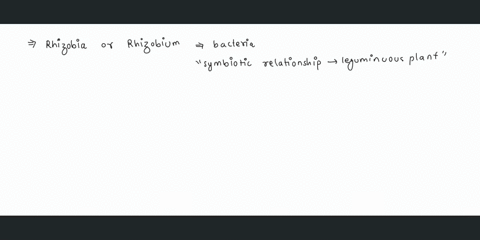 ⇒ Rhizobia or Rhizobium ⇒ bacteria
"symbiotic relationship → leguminuous plant"